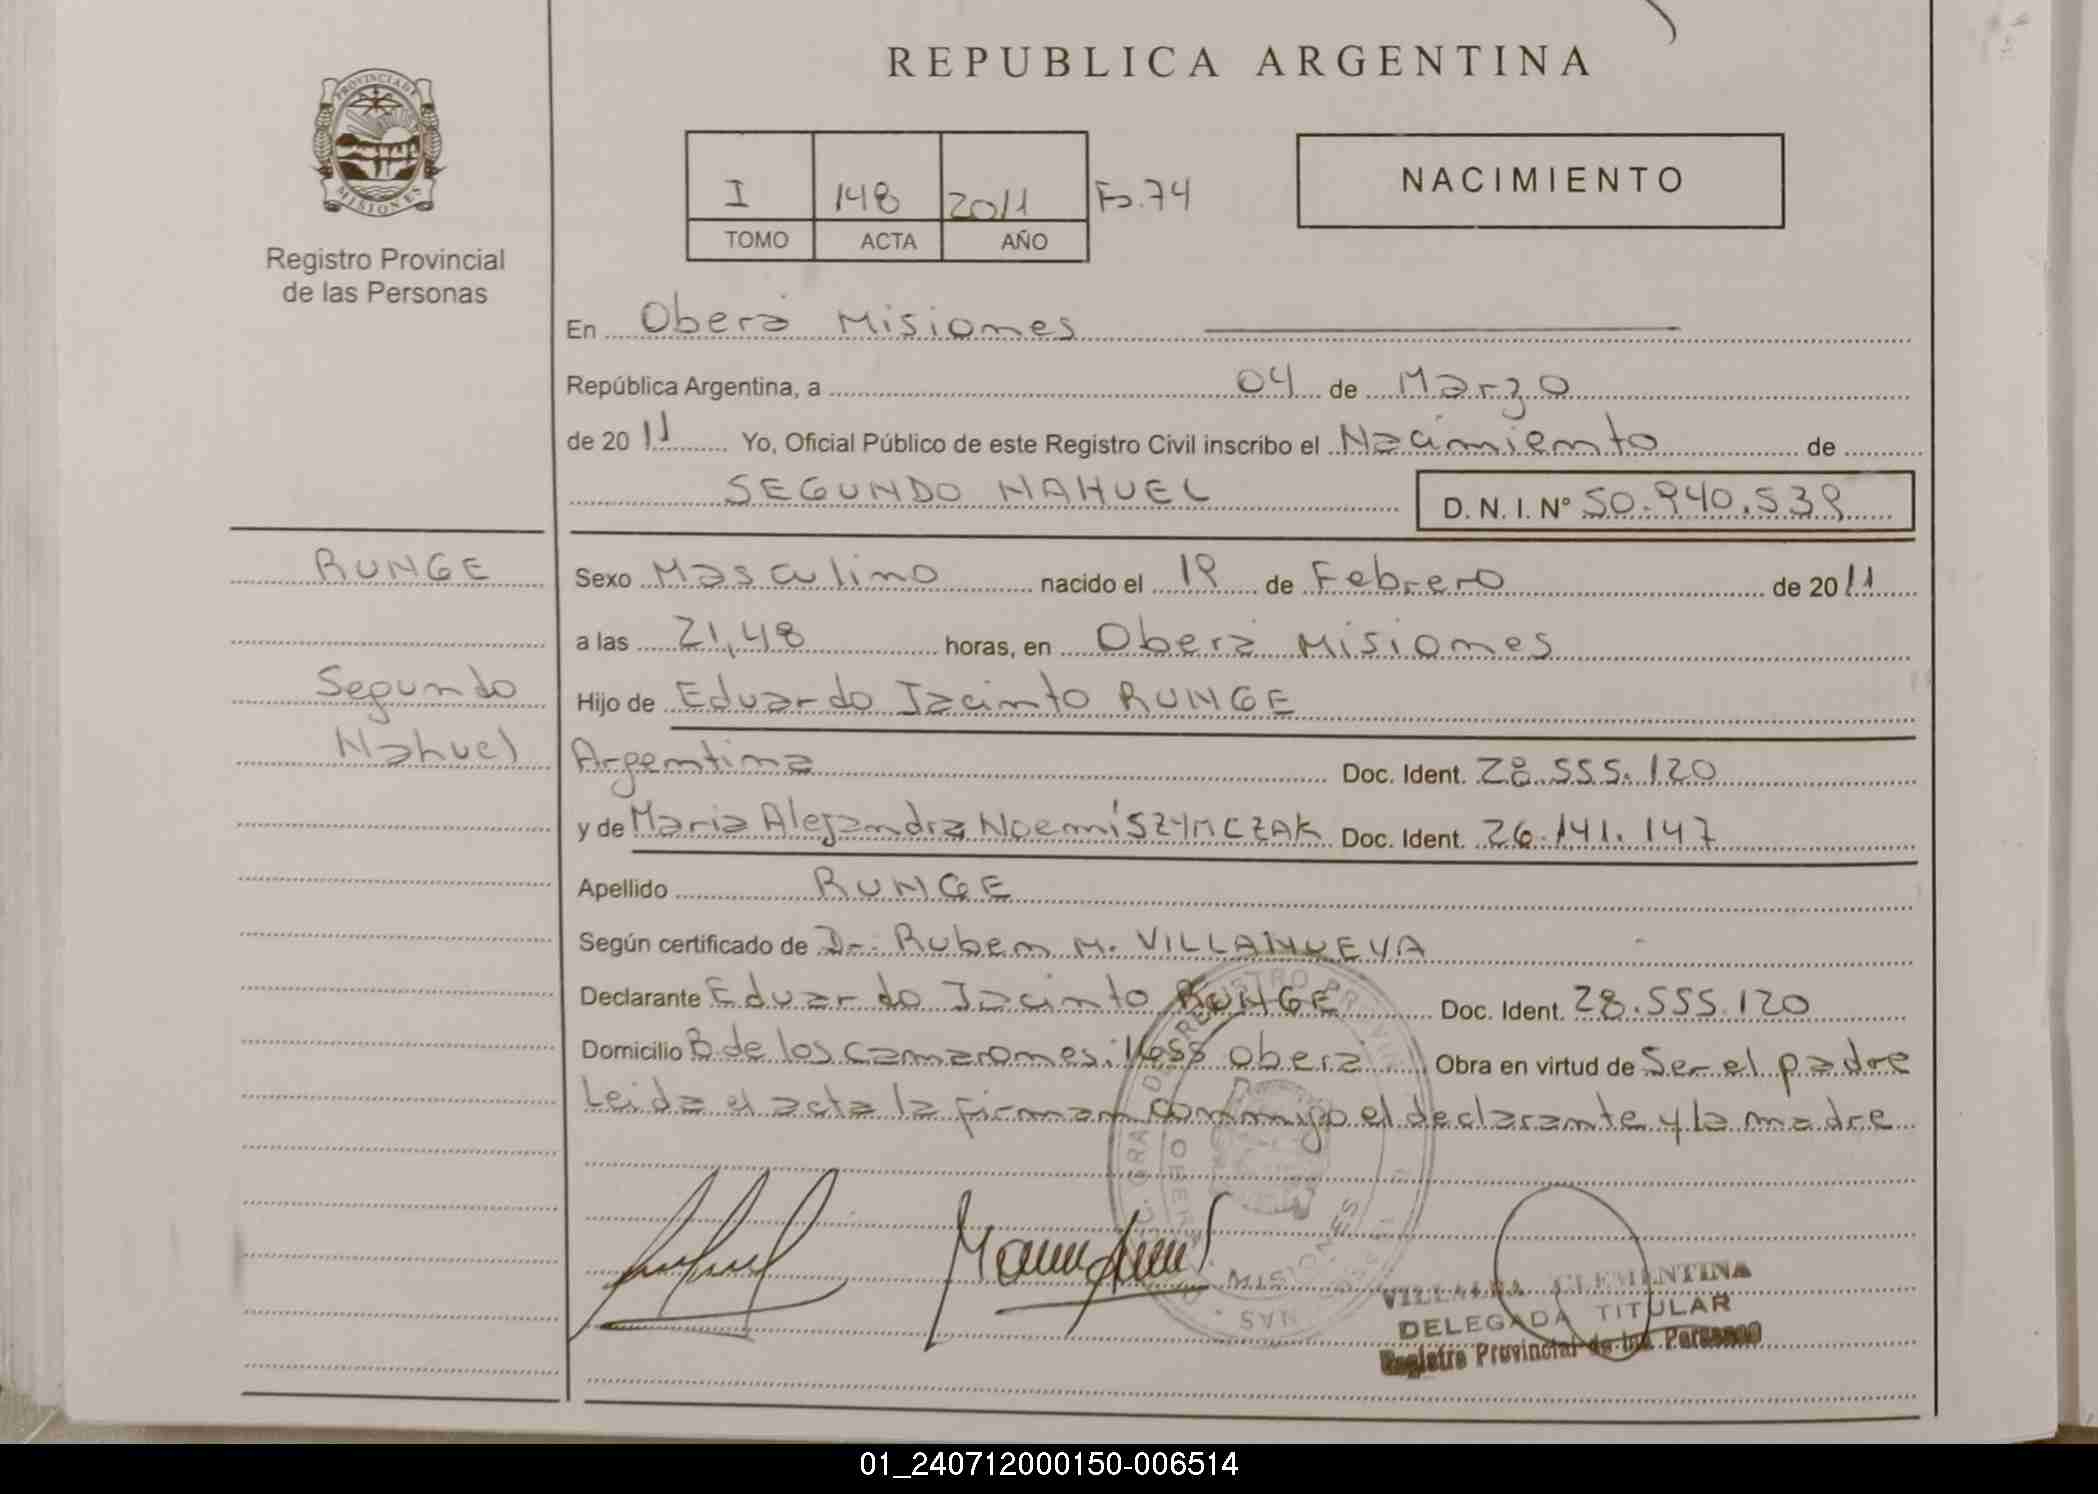 REPUBLICA ARGENTINA
PROVINCIA DE
MISIONES
Registro Provincial
de las Personas
I 148 2011 Fo.74
TOMO ACTA AÑO
NACIMIENTO
En Oberá Misiones
República Argentina, a 04 de Marzo
de 2011 Yo, Oficial Público de este Registro Civil inscribo el Nacimiento de
SEGUNDO NAHUEL D. N. I. N° 50.940.539
RUNGE
Segundo
Nahuel
Sexo Masculino nacido el 19 de Febrero de 2011
a las 21,48 horas, en Oberá Misiones
Hijo de Eduardo Jacinto RUNGE
Argentina Doc. Ident. 28.555.120
y de Maria Alejandra Noemí SZYMCZAK Doc. Ident. 26.141.147
Apellido RUNGE
Según certificado de Dr. Ruben M. VILLANUEVA
Declarante Eduardo Jacinto RUNGE Doc. Ident. 28.555.120
Domicilio B de los camarones. Oberá Obra en virtud de Ser el padre
Leida el acta la firman conmigo el declarante y la madre
MISIONES
VILLALBA CLEMENTINA
DELEGADA TITULAR
Registro Provincial de las Personas
01_240712000150-006514